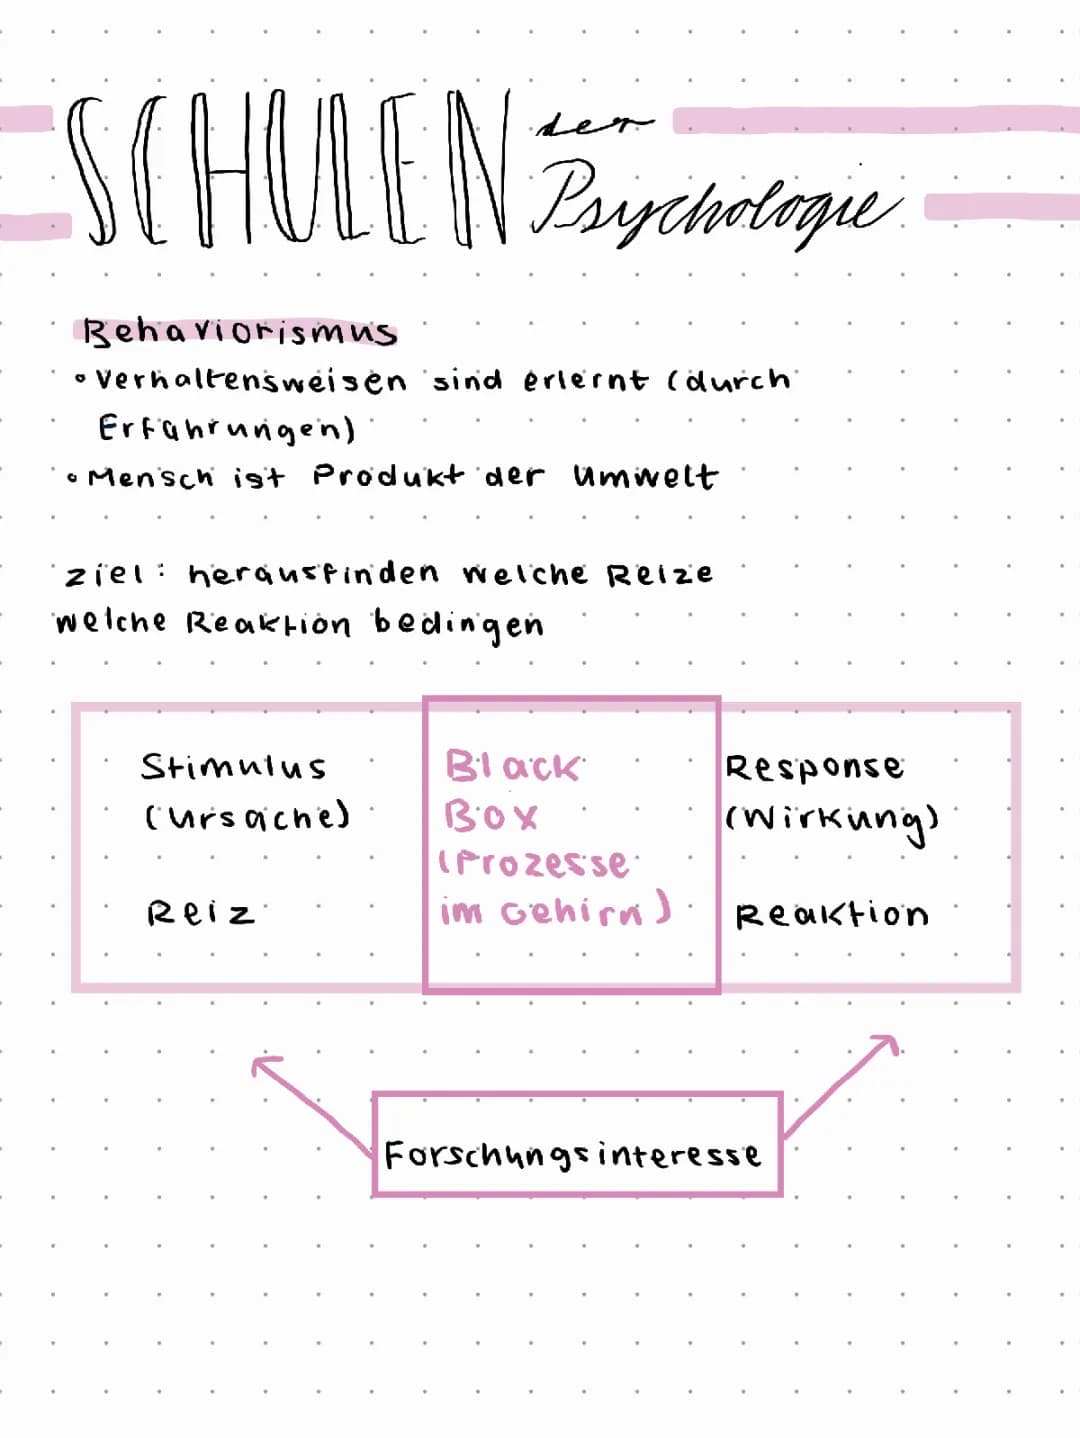 SCHULEN der
Psychologie
Behaviorismus
• Verhaltensweisen sind erlernt (durch
Erfahrungen)
• Mensch ist Produkt der Umwelt
Ziel: herausfinden welche Reize
welche Reaktion bedingen
Stimulus Black Response
(Ursache) Box (Wirkung)
(Prozesse
Reiz im Gehirn) Reaktion
Forschungsinteresse